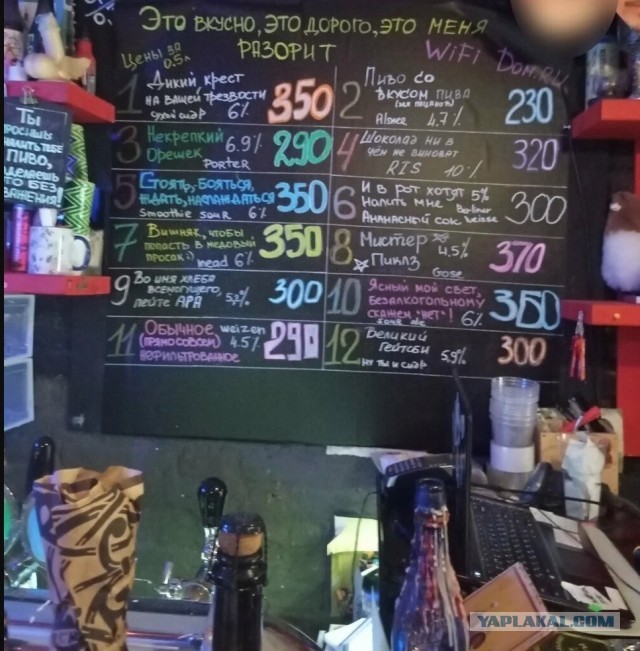 Это вкусно, это дорого, это меня
разорит
WiFi Dom.ru
Цены за
0.5л
1 Дикий крест
на вашей трезвости
сухой сидр 6% 350
2 Пиво со
вкусом пива
Alone 4.7% 230
3 Некрепкий 6.9%
Орешек Porter 290
4 Шоколад ни в
чём не виноват
RIS 10% 320
5 Стоять, бояться,
ждать, наслаждаться
Smoothie sour 6% 350
6 И в рот хотят 5%
Налить мне Berliner
Ананасный сок weisse 300
7 Вишняк, чтобы
попасть в медовый
просак:) mead 6% 350
8 Мистер 4,5%
Пиклз
Gose 370
9 Во имя хлеба
всемогущего,
пейте APA 300
10 Ясный мой свет,
безалкогольному
скажем "нет"! 6% 350
11 Обычное weizen
(прямо совсем) 4.5%
нефильтрованное 290
12 Великий
Гетсби 5,9%
ну ты и сидр 300
Ты
пиво,
YAPLAKAL.COM